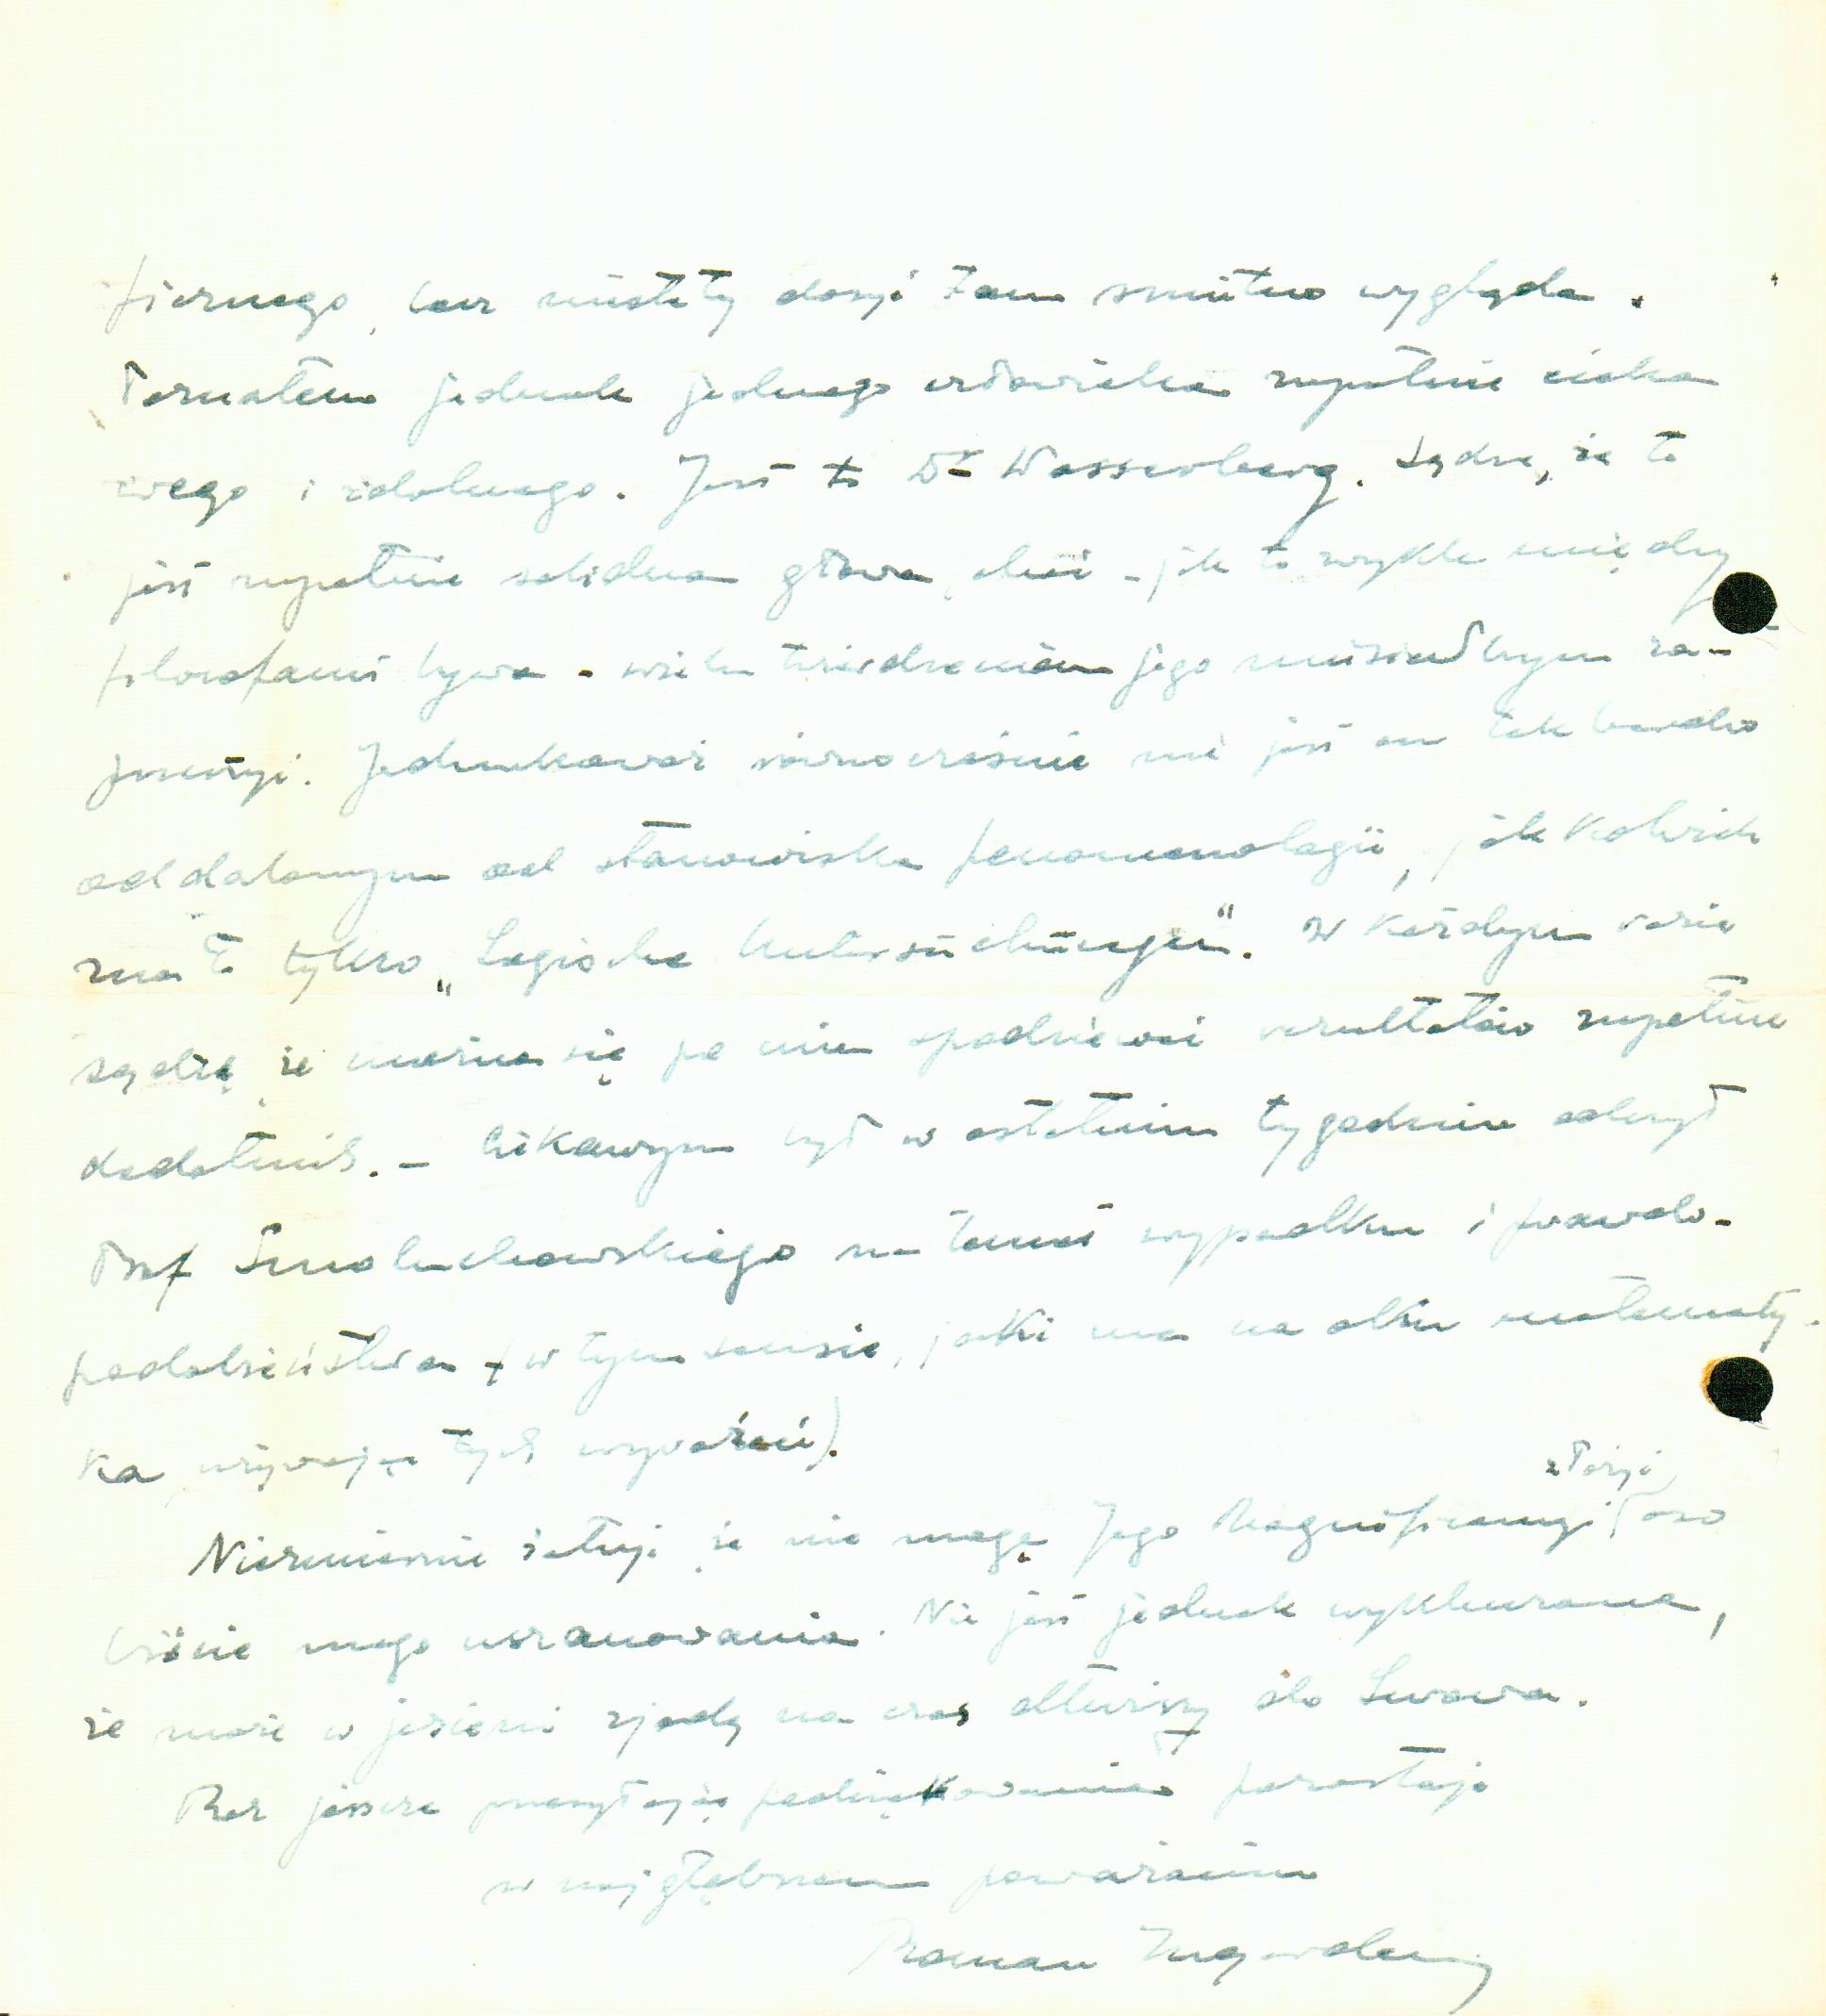 ficznego, lecz niestety dosyć tam smutno wygląda.
Poznałem jednak jednego człowieka zupełnie cieka
wego i zdolnego. Jest to Dr Wasserberg. Sądzę, że to
jest zupełnie solidna głowa, choć – jak to zwykle między
filozofami bywa – wielu twierdzeniom jego musiałbym za-
przeczyć. Jednakowoż równocześnie nie jest on tak bardzo
oddalonym od stanowiska fenomenologii, jakkolwiek
zna to tylko „Logische Untersuchungen". W każdym razie
sądzę, że można się po nim spodziewać rezultatów zupełnie
dodatnich. – Ciekawym był w ostatnim tygodniu odczyt
Prof Smoluchowskiego na temat wypadku i prawdo-
podobieństwa (w tym sensie, jaki ma na oku matematy-
ka używając tych wyrażeń).
Niezmiernie żałuję, że nie mogę Jego Magnificencyi złożyć oso
biście mego uszanowania. Nie jest jednak wykluczone,
że może w jesieni zjadę na czas dłuższy do Lwowa.
Raz jeszcze przesyłając podziękowania pozostaję
w najgłębszem poważaniu
Roman Ingarden